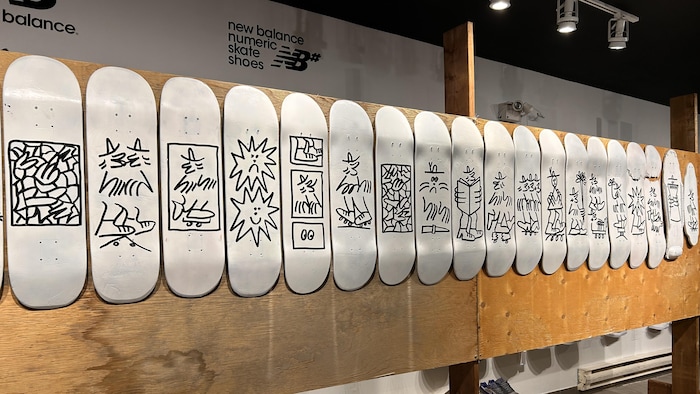 balance.
new balance
numeric
skate
shoes
NB#